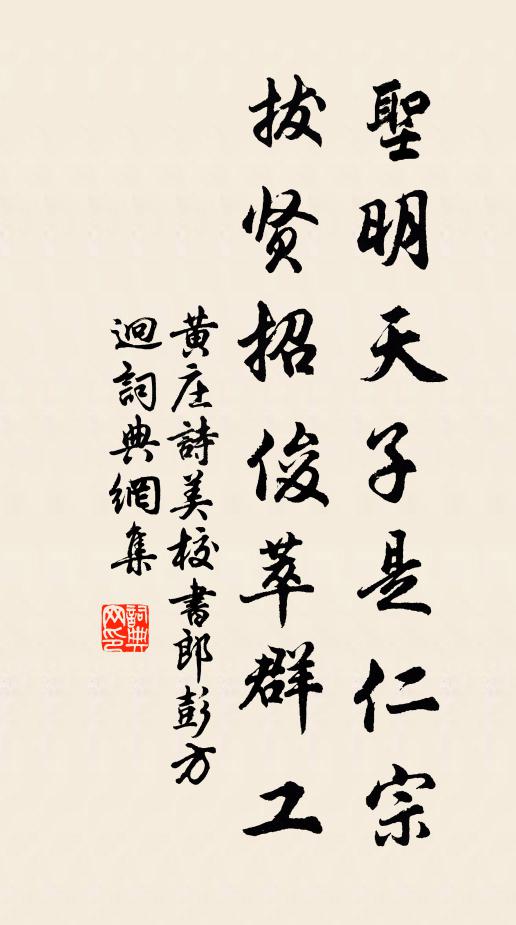 聖明天子是仁宗
拔贤招俊萃群工
黄庄詩美校書郎彭方
迥詞典網集
詞典
网印